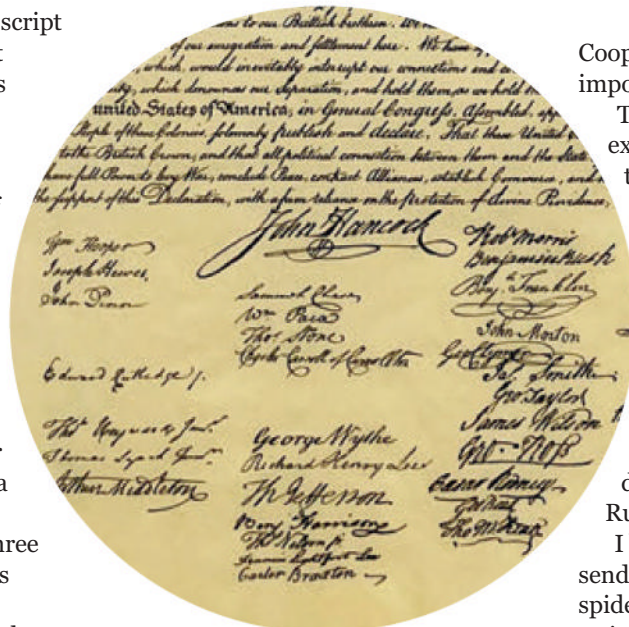 script
t
s
a
hree
s
ons to our Brittish brethren. We
of our emigration and settlement here. We have
which, would inevitably interrupt our connections and
which denounces our Separation, and hold them, as we hold
united States of America, in General Congress, Assembled, app
People of these Colonies, solemnly publish and declare, That these United
to the British Crown, and that all political connection between them and the State
have full Power to levy War, conclude Peace, contract Alliances, establish Commerce, and
the support of this Declaration, with a firm reliance on the protection of divine Providence,
John Hancock
Wm Hooper
Joseph Hewes,
John Penn
Edward Rutledge /.
Thos Heyward Junr.
Thomas Lynch Junr.
Arthur Middleton
Samuel Chase
Wm Paca
Thos Stone
Charles Carroll of Carrollton
George Wythe
Richard Henry Lee
Th Jefferson
Benj Harrison
Thos Nelson jr.
Francis Lightfoot Lee
Carter Braxton
Robt Morris
Benjamin Rush
Benj. Franklin
John Morton
Geo Clymer
Jas. Smith
Geo. Taylor
James Wilson
Geo. Ross
Caesar Rodney
Geo Read
Tho M:Kean
Coop
impo
T
ex
t
d
Ru
I
send
spide